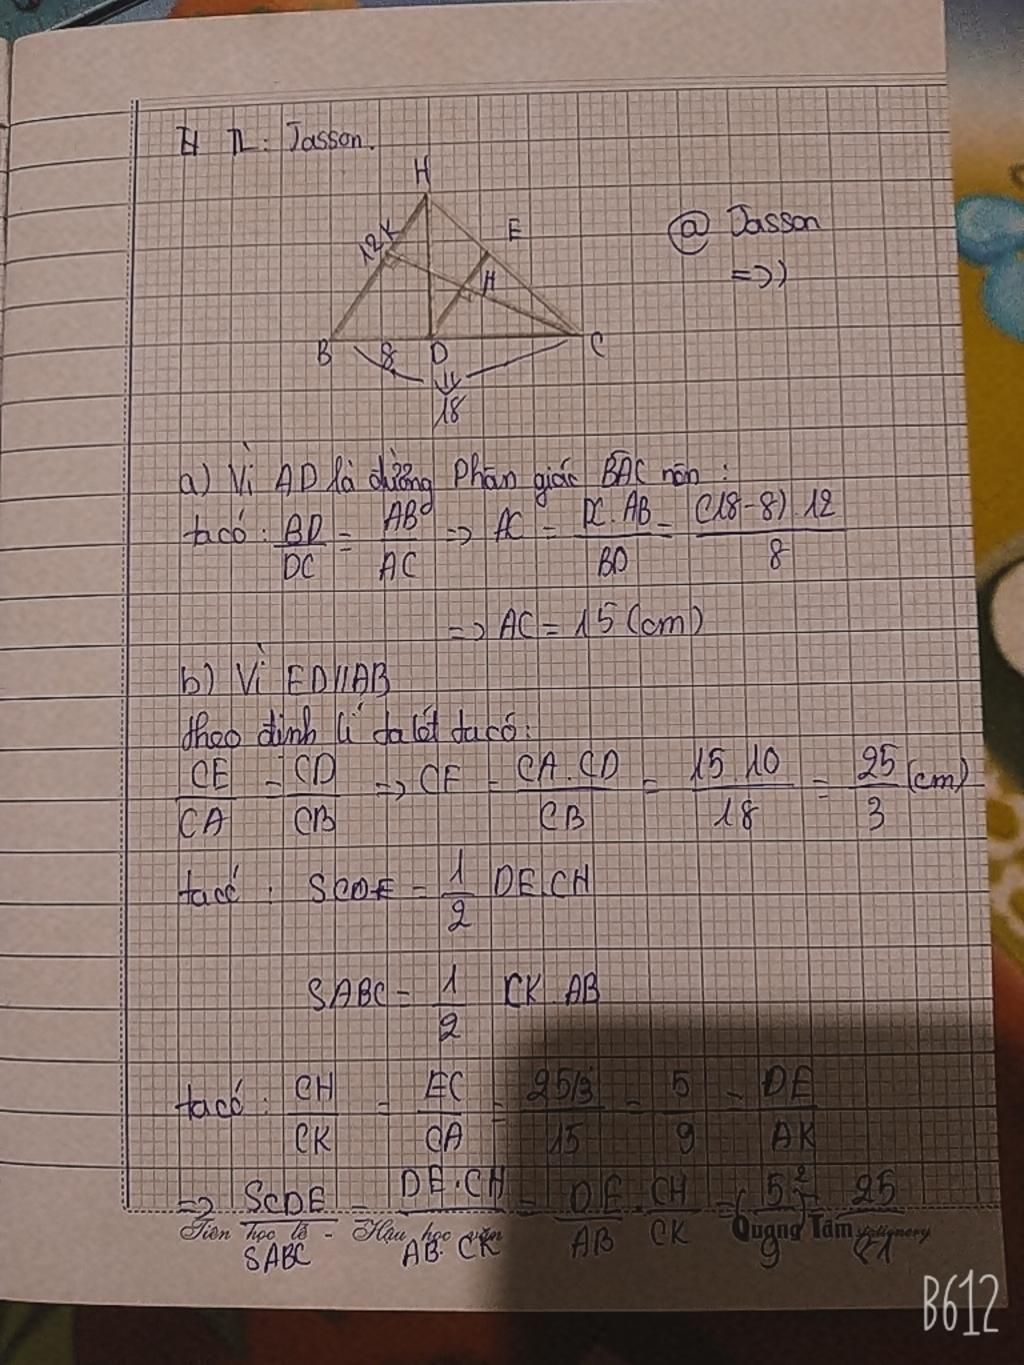 TL: Jasson.
H
12 K
E
@ Jasson
=>)
H
B 8 D C
18
a) Vì AD là đường phân giác BAC nên :
ta có : BD/DC = AB/AC => AC = DC.AB/BD = (18-8).12/8
=> AC = 15 (cm)
b) Vì ED//AB
theo định lí ta lét ta có:
CE/CA = CD/CB => CE = CA.CD/CB = 15.10/18 = 25/3 (cm)
ta có : SCDE = 1/2 DE.CH
SABC = 1/2 CK.AB
ta có : CH/CK = EC/CA = 25/3/15 = 5/9 = DE/AK
=> SCDE/SABC = DE.CH/AB.CK = DE/AB . CH/CK = (5/9)² = 25/
Tiên học lễ - Hậu học văn Quang Tâm stationery
B612